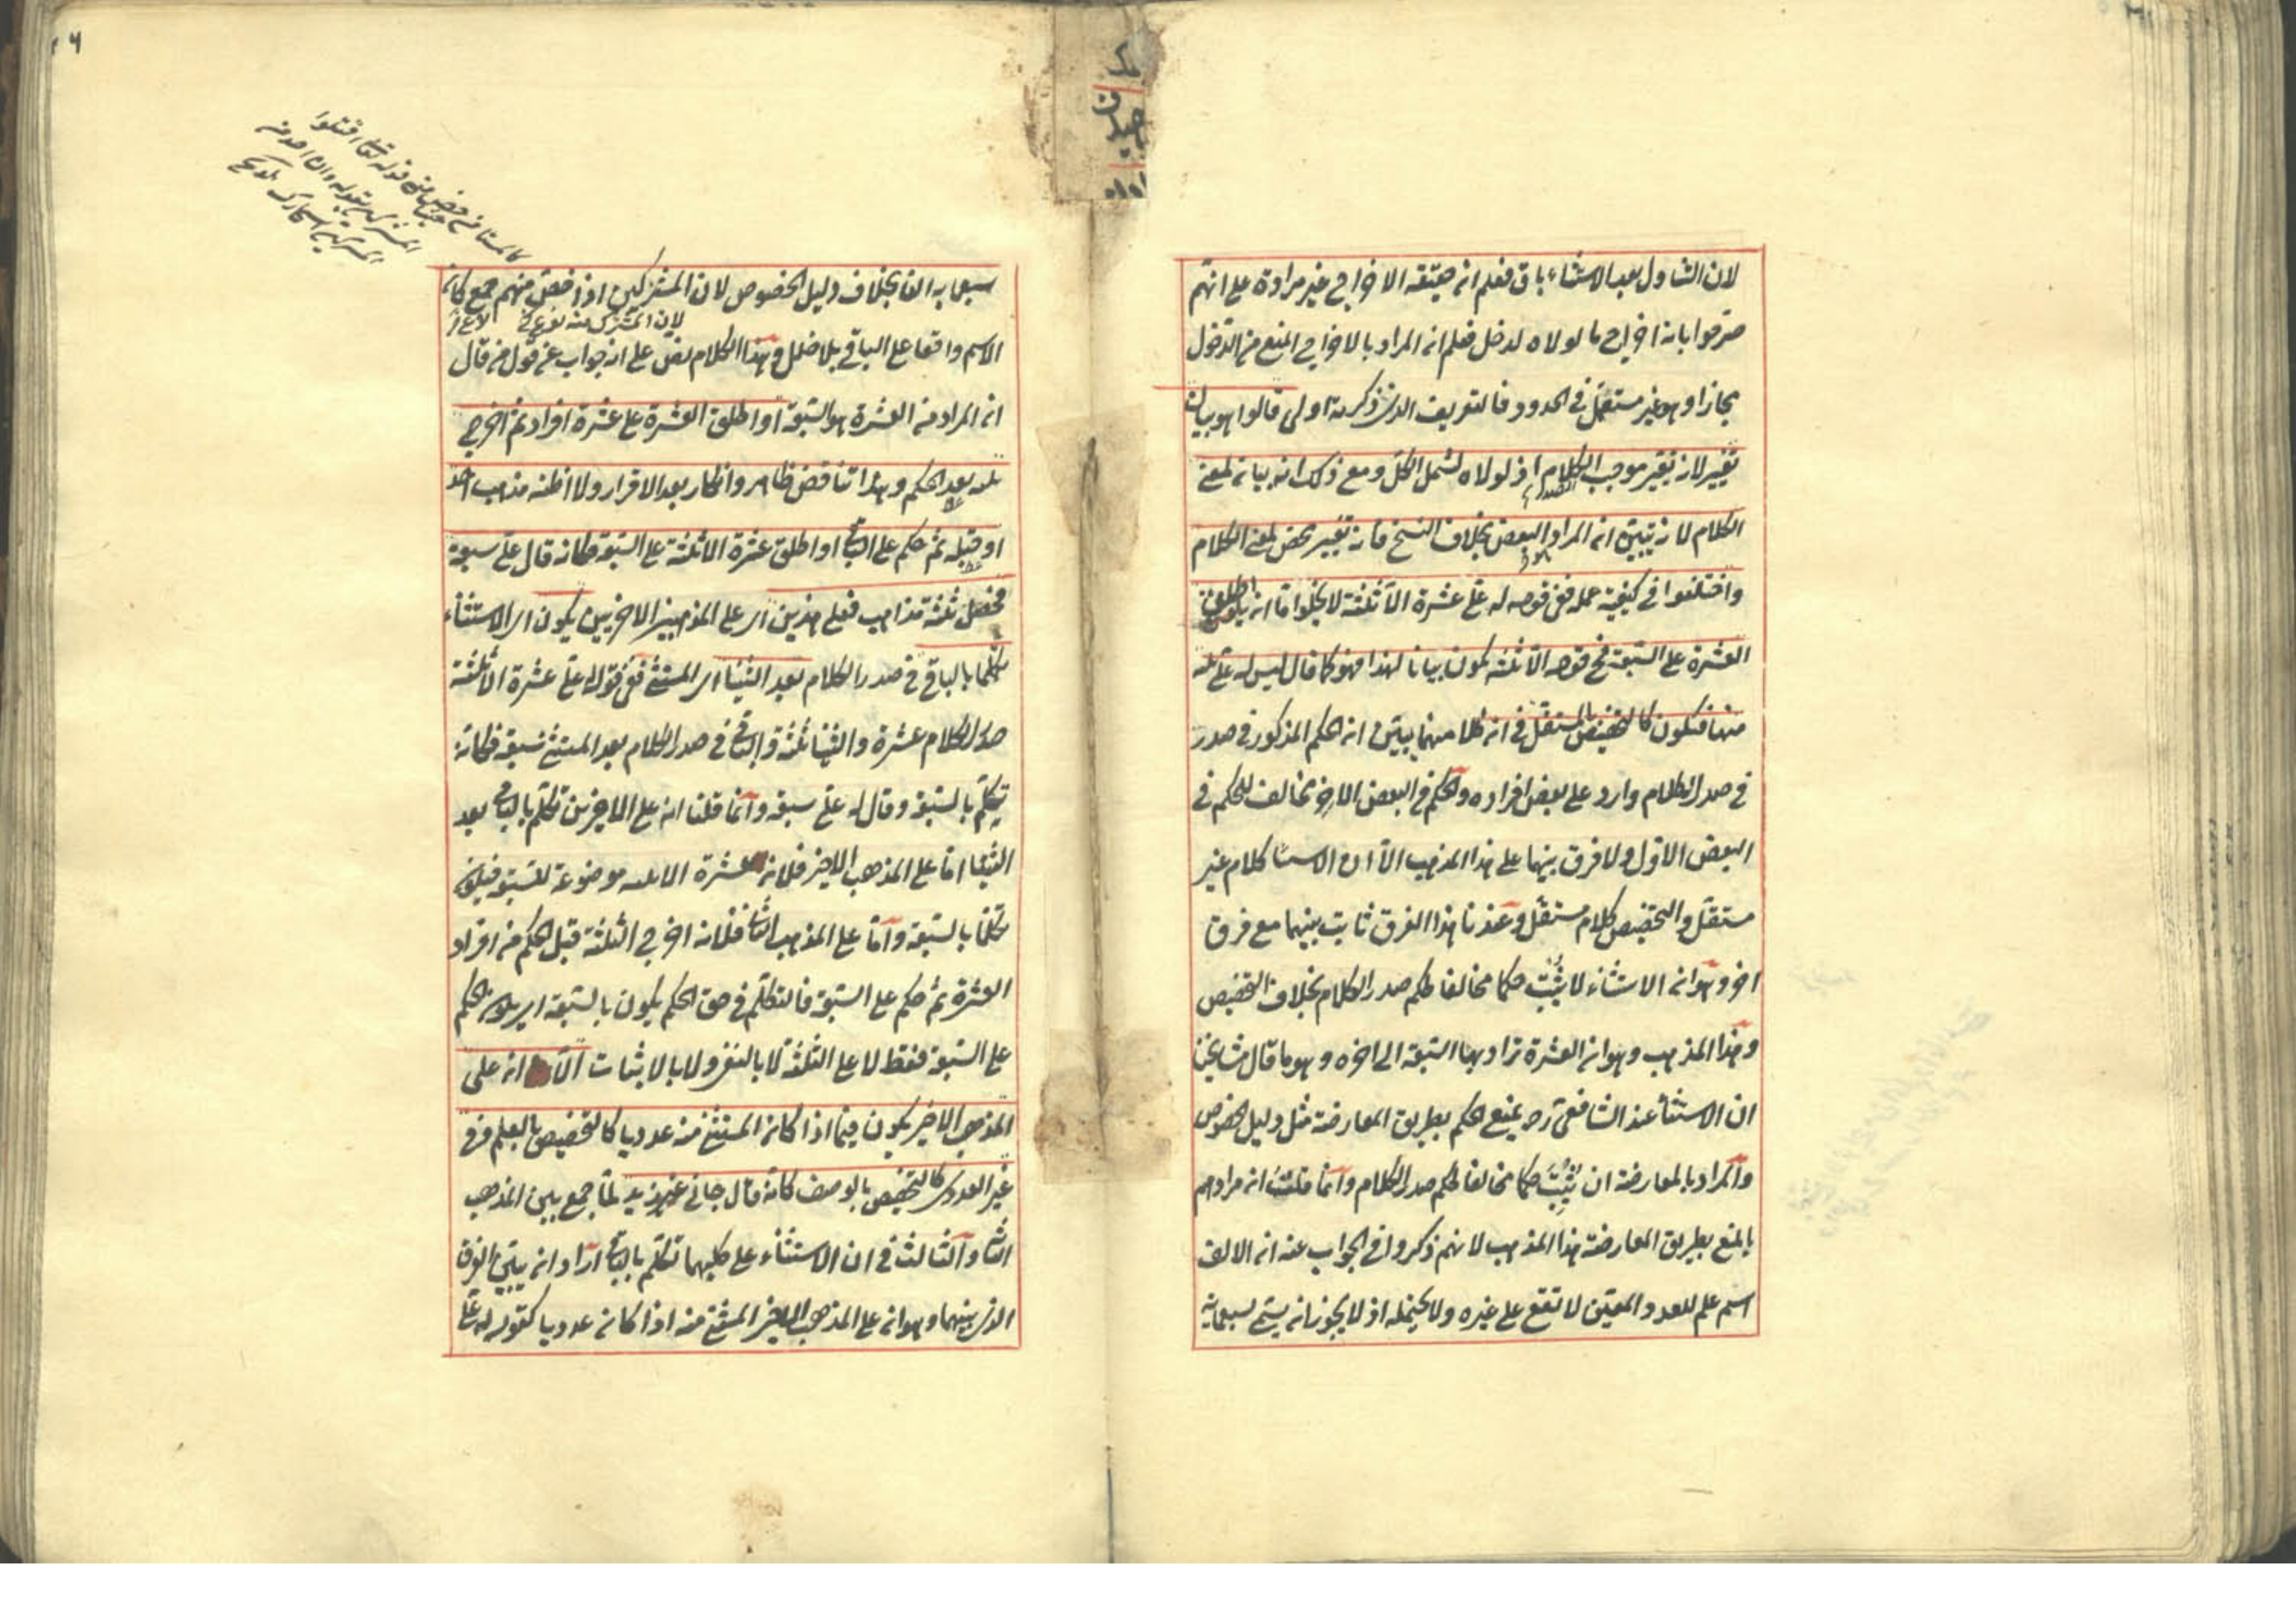 لان التناول بعد الاستثناء باق فعلم ان حقيقة الاخراج غير مرادة على انهم
صرحوا بانه اخراج ما لولاه لدخل فعلم ان المراد بالاخراج المنع من الدخول
مجازا وهو غير مستعمل في الحدود فالتعريف الذي ذكرته اولى قالوا هو بيان
تغيير لانه يغير موجب الكلام اذ لولاه لشمل الكل ومع ذلك انه بيان لمعنى
الكلام لانه يبين ان المراد البعض بخلاف النسخ فانه تغيير محض لمعنى الكلام
واختلفوا في كيفية عمله ففي قوله له علي عشرة الا ثلثة لا يخلوا اما انه
العشرة على السبعة فح قوله الا ثلثة يكون بيانا لهذا فهو كما قال ليس له علي ثلثة
منها فيكون كالتخصيص بالمستقل في ان كلا منهما يبين ان الحكم المذكور في صدر
في صدر الكلام وارد على بعض افراده والحكم في البعض الاخر مخالف للحكم في
البعض الاول ولا فرق بينهما على هذا المذهب الا ان الاستثنا كلام غير
مستقل والتخصيص كلام مستقل وعندنا هذا الفرق ثابت بينهما مع فرق
اخر وهو ان الاستثناء لا يثبت حكما مخالفا لحكم صدر الكلام بخلاف التخصيص
وهذا المذهب وهو ان العشرة يراد بها السبعة الى اخره وهو ما قال مشايخنا
ان الاستثنا عند الشافعي رح يمنع الحكم بطريق المعارضة مثل دليل الخصوص
والمراد بالمعارضة ان يثبت حكما مخالفا لحكم صدر الكلام وانما قلت ان مرادهم
بالمنع بطريق المعارضة هذا المذهب لانهم ذكروا في الجواب عنه ان الالف
اسم علم للعدد المعين لا تقع على غيره ولا يحتمله اذ لا يجوز ان يسمى تسعمائة
سبعمايه الفا بخلاف دليل الخصوص لان المشركين اذا خص منهم جمع كان
الاسم واقعا على الباقي بلا خلل وهذا الكلام نص على انه جواب عن قول من قال
ان المراد من العشرة هو السبعة او اطلق العشرة على عشرة افراد ثم اخرج
ثلثة بعد الحكم وهذا تناقض ظاهر وانكار بعد الاقرار ولا اظنه مذهب احد
او قبله ثم حكم على الباقي او اطلق عشرة الا ثلثة على السبعة فكانه قال علي سبعة
فحصل ثلثة مذاهب فعلى هذين اي على المذهبين الاخيرين يكون اي الاستثناء
تكلما بالباقي في صدر الكلام بعد الثنيا اي المستثنى ففي قوله له علي عشرة الا ثلثة
صدر الكلام عشرة والثنيا ثلثة والباقي في صدر الكلام بعد المستثنى سبعة فكانه
تكلم بالسبعة وقال له علي سبعة وانما قلنا انه على الاخيرين تكلم بالباقي بعد
الثنيا اما على المذهب الاخير فلان عشرة الا ثلثه موضوعة للسبعة فيكون
تكلما بالسبعة واما على المذهب الثاني فلانه اخرج الثلثة قبل الحكم من افراد
العشرة ثم حكم على السبعة فالتكلم في حق الحكم يكون بالسبعة اي يكون الحكم
على السبعة فقط لا على الثلثة لا بالنفي ولا بالاثبات الا انه على
المذهب الاخير يكون فيما اذا كان المستثنى منه عدديا كالتخصيص بالعلم وفي
غير العددي كالتخصيص بالوصف كانه قال جاني غير زيد لما جمع بين المذهب
الثاني والثالث في ان الاستثناء على كليهما تكلم بالباقي اراد ان يبين الفرق
الذي بينهما وهو ان على المذهب الاخير المستثنى منه اذا كان عدديا كقوله له علي